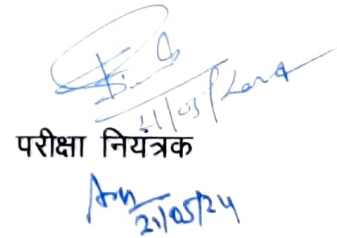 21/05/2024
परीक्षा नियत्रक
21/05/24